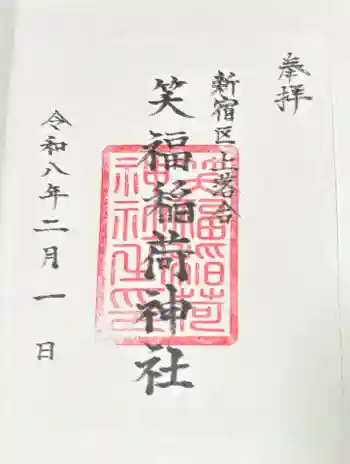 奉拝
新宿区上落合
笑福稲荷神社
笑福稲荷
神社之印
令和八年二月一日